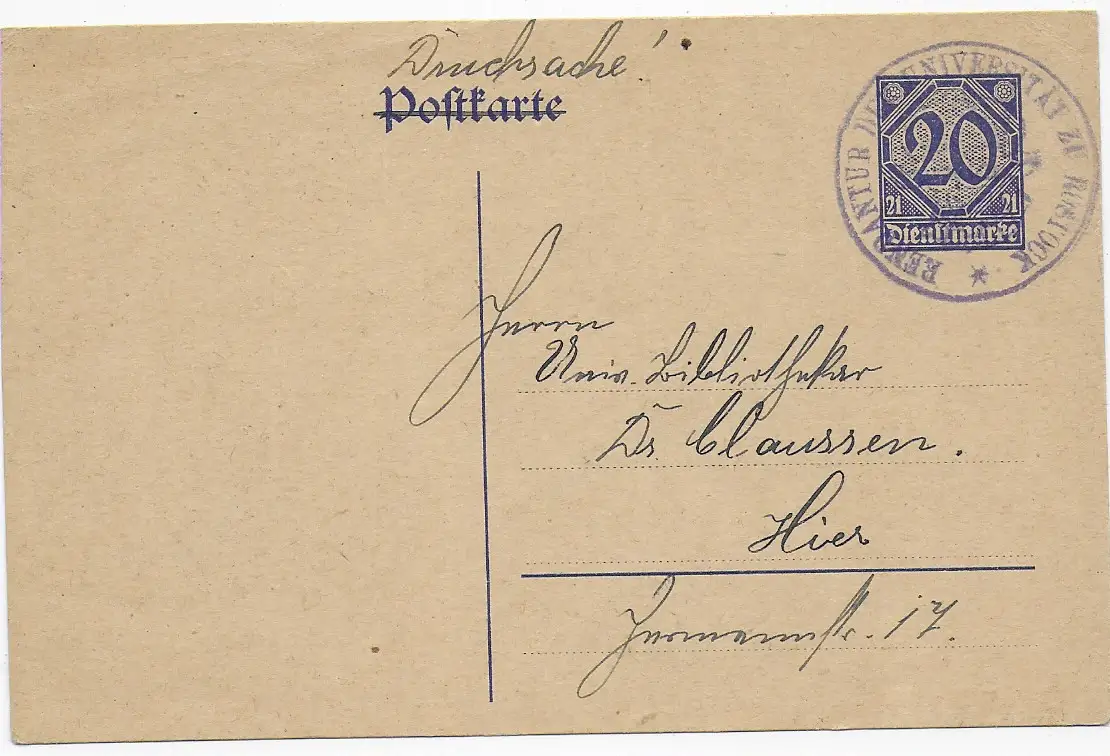 Drucksache!
Postkarte
RENDANTUR DER UNIVERSITÄT ZU ROSTOCK
20
21 21
Dienstmarke
Herrn
Univ. Bibliothekar
Dr. Claussen.
Hier
17.